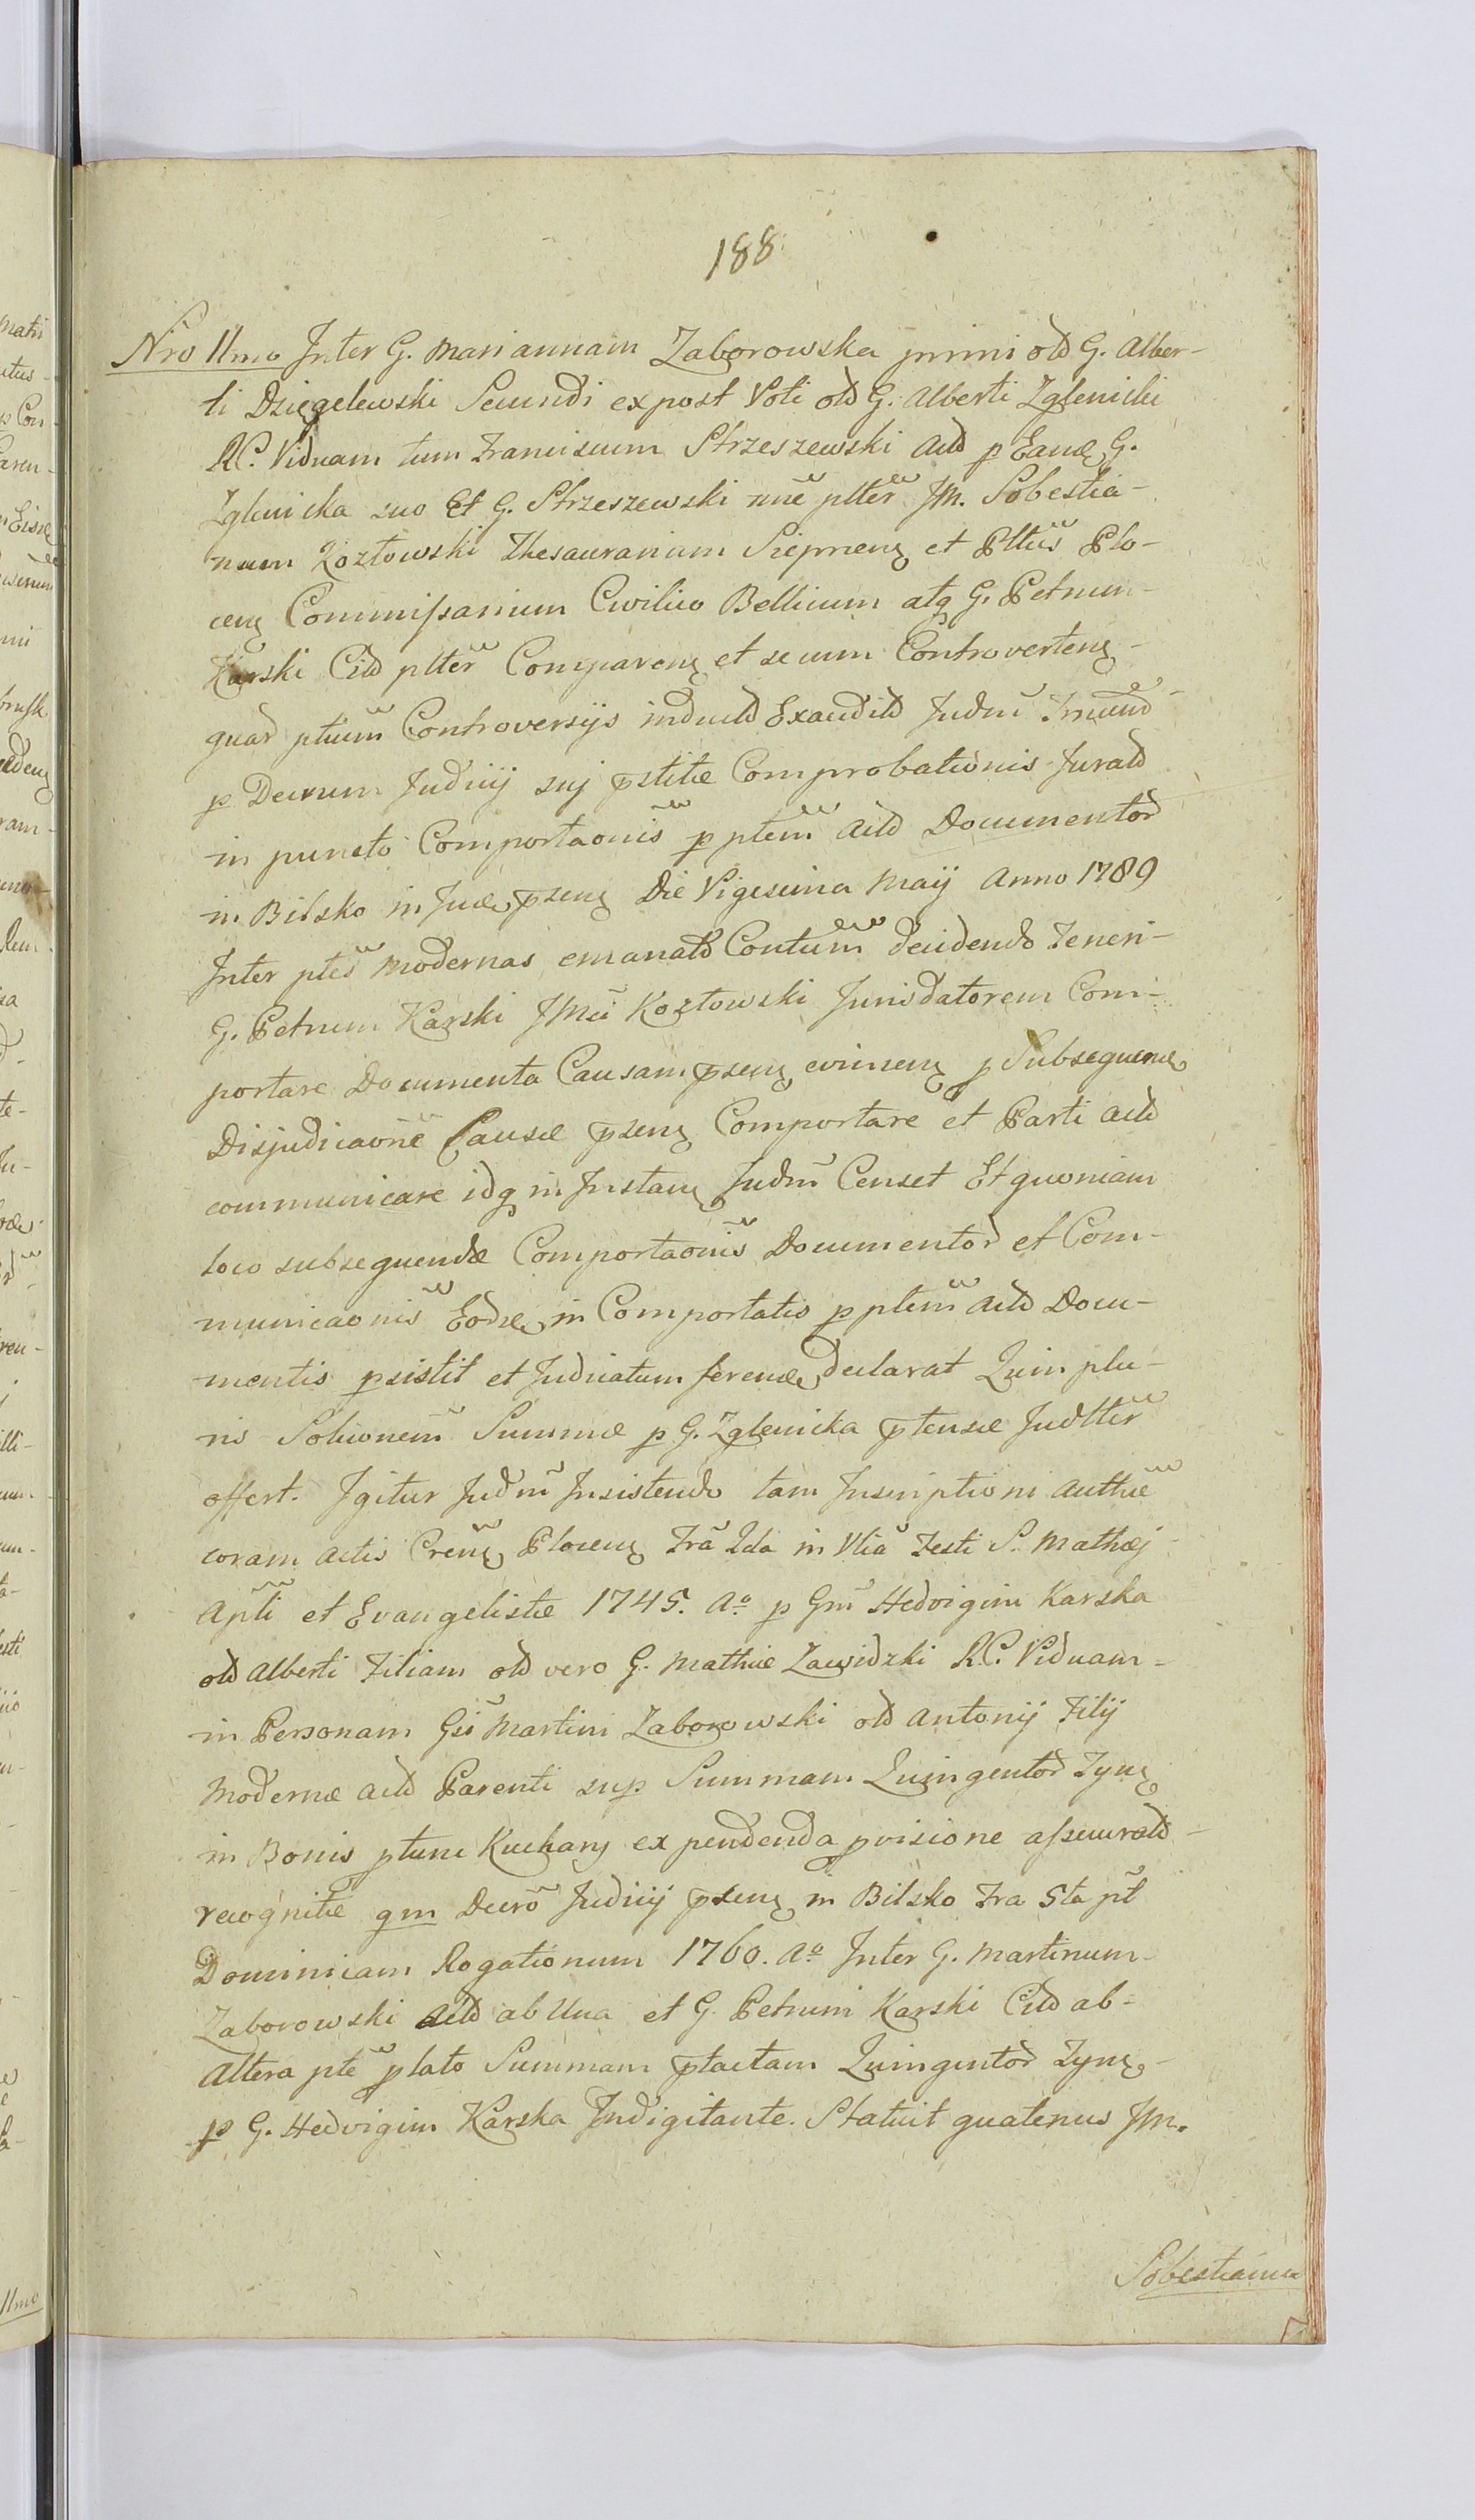 188
Nro 11mo Inter G. Mariannam Zaborowska primi old G. Alber-
ti Dzięgelewski Secundi expost Voti old G. Alberti Zglenicki
RC. Viduam tum Franciscum Strzeszewski Actd p Eandę G.
Zglenicka suo Et G. Strzeszewski nñe plter JM. Sobestia-
num Kozłowski Thesaurarium Sieprneng et Pltus Plo-
ceng Commissarium Civilico Bellicum atq G. Petrum
Karski Citd plter Compareng et secum Controverteng
quar ptium Controversijs inductd Exauditd Judm
p Decrum Judicij suj pstitæ Comprobationis Juratd
in puncto Comportaonis p ptem Actd Documentor
in Bilsko in Jud pseng Die Vigesima Maij Anno 1789
Inter ptes modernas emanatd Contum decidendo Teneri
G. Petrum Karski JMci Kozłowski Jurisdatorem Com-
portare Documenta Causam pseng evineng p Subsequend
Disjudicaone Causæ pseng Comportare et Parti actd
communicare idq in Instang Judm Censet Et quoniam
loco subsequendæ Comportaonis Documentor et Com-
municaonis Eord in Comportatis p ptem actd Docu-
mentis psistit et Judicatum ferend declarat Quin plu-
ris Soluonem Summæ p G. Zglenicka ptensæ Judlter
offert. Igitur Judm Insistendo tam Inscriptioni Authæ
coram actis Creng Ploceng Fra 2da in Vlia Festi S. Mathej
Apli et Evangelistæ 1745. Ao p Gm Hedvigim Karska
old Alberti Filiam old vero G. Mathiæ Zawidzki RC. Viduam
in Personam Gsi Martini Zaborowski old Antonij Filij
modernæ actd Parenti sup Summam Quingentor Tyng
in Bonis ptum Kuchary ex pendenda pvisione assecuratd
recognitæ qm Decro Judicij pseng in Bilsko Fra 5ta pt
Dominicam Rogationum 1760. Ao Inter G. Martinum
Zaborowski Actd ab Una et G. Petrum Karski Citd ab
Altera pte plato Summam ptactam Quingentor Tyng
p G. Hedvigim Karska Indigitante. Statuit quatenus JM.
Sobestianus